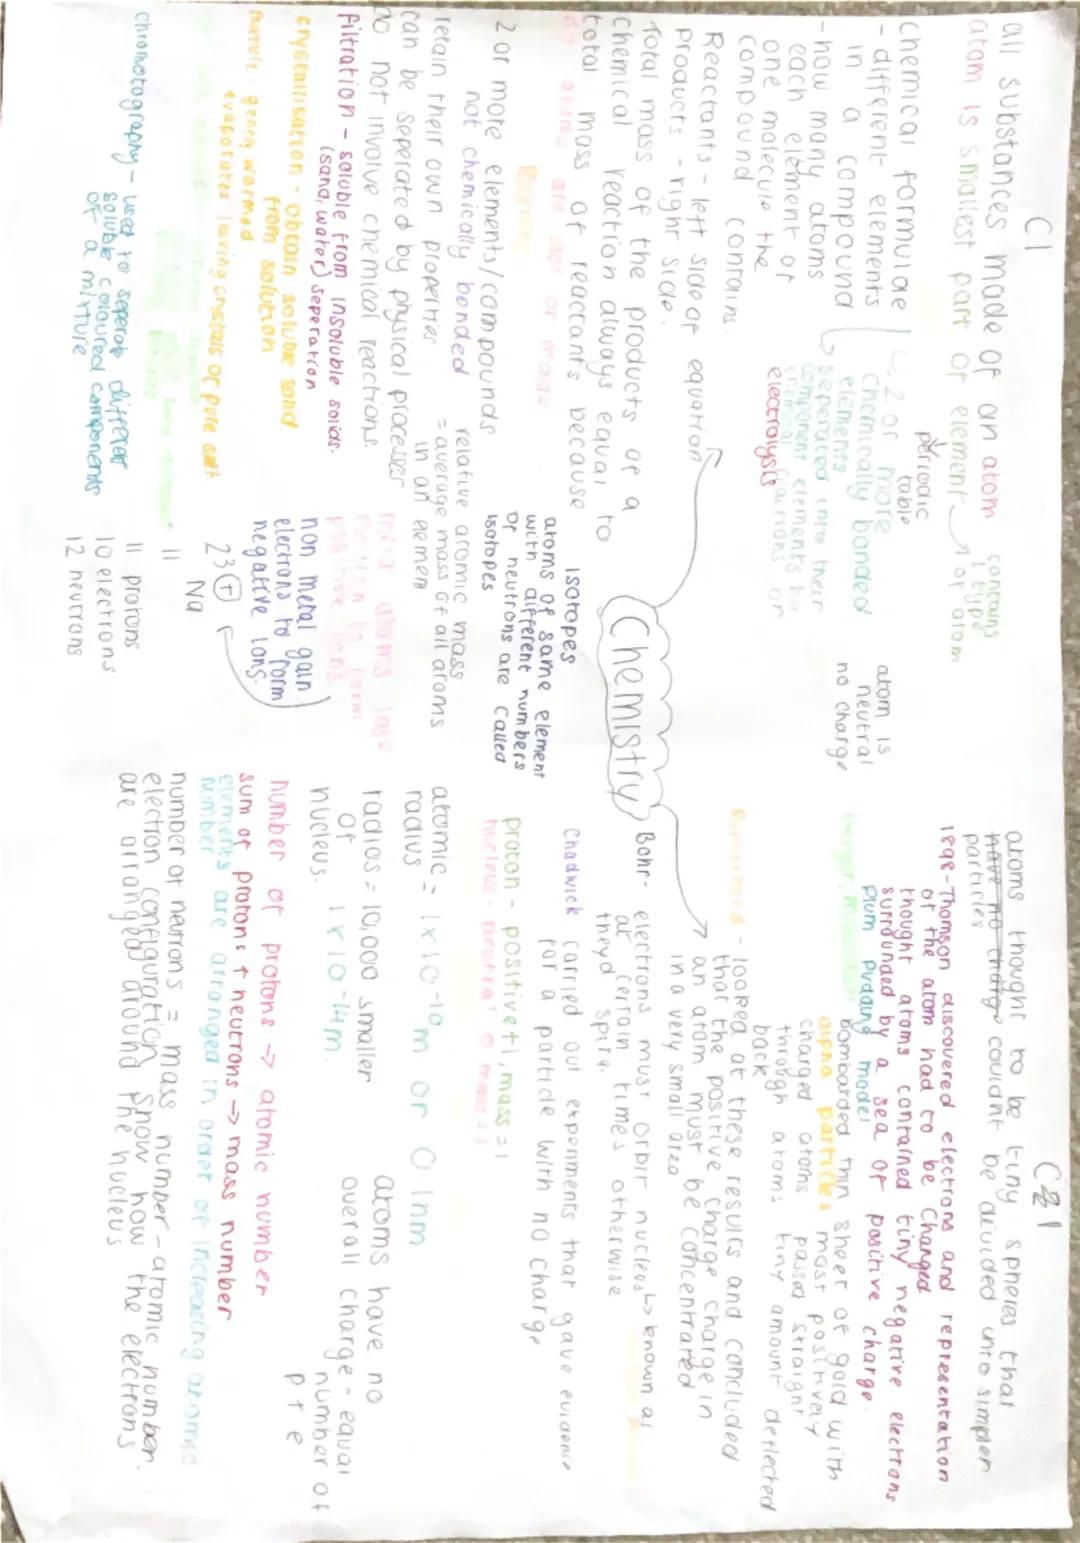 C1
all substances made of an atom
atom is smallest part of element
contains
1 type
of atom
periodic
table
Chemical formulae
- different elements
in a compound
- how many atoms
each element of
one molecule the
compound contains.
2 or more
chemically bonded
elements
seperated into their
component elements by
chemical reactions or
electrolysis
atom is
neutral
no charge
Reactants - left side of equation
products - right side.
Total mass of the products of a
chemical reaction always equal to
total mass of reactants because
no atoms are lost or made
2 or more elements/compounds
not chemically bonded
retain their own properties
can be seperated by physical processes
do not involve chemical reactions.
filtration - soluble from insoluble solids.
(sand, water) seperation
crystallisation - obtain soluble solid
from solution
evaporates leaving crystals of pure salt
chromotography - used to seperate different
soluble coloured components
of a mixture
Chemistry
isotopes
atoms of same element
with different numbers
of neutrons are called
isotopes
relative atomic mass
= average mass of all atoms
in an elemen
metal atoms lose
electron to form
positive ions
non metal gain
electrons to form
negative ions.
23 +
Na
11
11 protons
10 electrons
12 neutrons
C1
atoms thought to be tiny spheres that
have no charge couldnt be devided unto simplen
particles
1897 - Thomson discovered electrons and representation
of the atom had to be Changed
though atoms contained tiny negative electrons
surrounded by a sea of positive charge.
plum pudding model
bombarded thin sheet of gold with
alpha particles most positively
charged atoms passed straight
through atoms tiny amount deflected
back
Rutherford - looked at these results and concluded
that the positive charge charge in
an atom must be concentrated
in a very small area
Bohr - electrons must orbit nucleus known as
at certain times otherwise
theyd spira.
Chadwick carried out experiments that gave evidence
for a particle with no charge
proton - positive +1, mass = 1
atomic = 1x10-10m or 0.1nm
radius
radios = 10,000 smaller
of 1x10-14m.
nucleus.
atoms have no
overall charge - equal
number of
p + e
number of protons → atomic number
sum of protons + neutrons → mass number
elements are arranged in order of increasing atomic
number
number of neutrons = mass number - atomic number.
electron configuration show how the electrons
are arranged around the nucleus